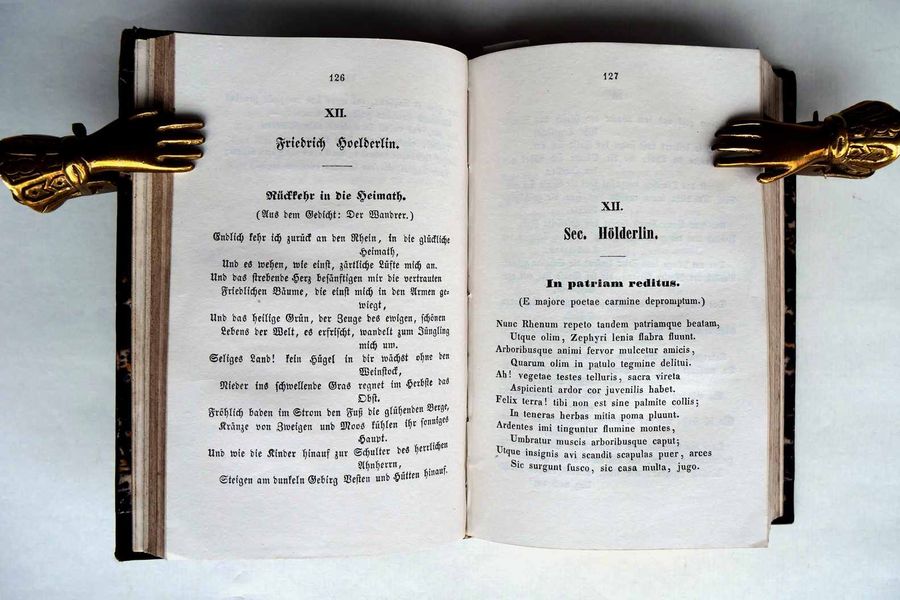 126
XII.
Friedrich Hoelderlin.
Rückkehr in die Heimath.
(Aus dem Gedicht: Der Wandrer.)
Endlich kehr ich zurück an den Rhein, in die glückliche
Heimath,
Und es wehen, wie einst, zärtliche Lüfte mich an.
Und das strebende Herz besänftigen mir die vertrauten
Friedlichen Bäume, die einst mich in den Armen ge-
wiegt,
Und das heilige Grün, der Zeuge des ewigen, schönen
Lebens der Welt, es erfrischt, wandelt zum Jüngling
mich um.
Seliges Land! kein Hügel in dir wächst ohne den
Weinstock,
Nieder ins schwellende Gras regnet im Herbste das
Obst.
Fröhlich baden im Strom den Fuß die glühenden Berge,
Kränze von Zweigen und Moos kühlen ihr sonniges
Haupt.
Und wie die Kinder hinauf zur Schulter des herrlichen
Ahnherrn,
Steigen am dunkeln Gebirg Vesten und Hütten hinauf.
127
XII.
Sec. Hölderlin.
In patriam reditus.
(E majore poetae carmine depromptum.)
Nunc Rhenum repeto tandem patriamque beatam,
Utque olim, Zephyri lenia flabra fluunt.
Arboribusque animi fervor mulcetur amicis,
Quarum olim in patulo tegmine delitui.
Ah! vegetae testes telluris, sacra vireta
Aspicienti ardor cor juvenilis habet.
Felix terra! tibi non est sine palmite collis;
In teneras herbas mitia poma pluunt.
Ardentes imi tinguntur flumine montes,
Umbratur muscis arboribusque caput;
Utque insignis avi scandit scapulas puer, arces
Sic surgunt fusco, sic casa multa, jugo.